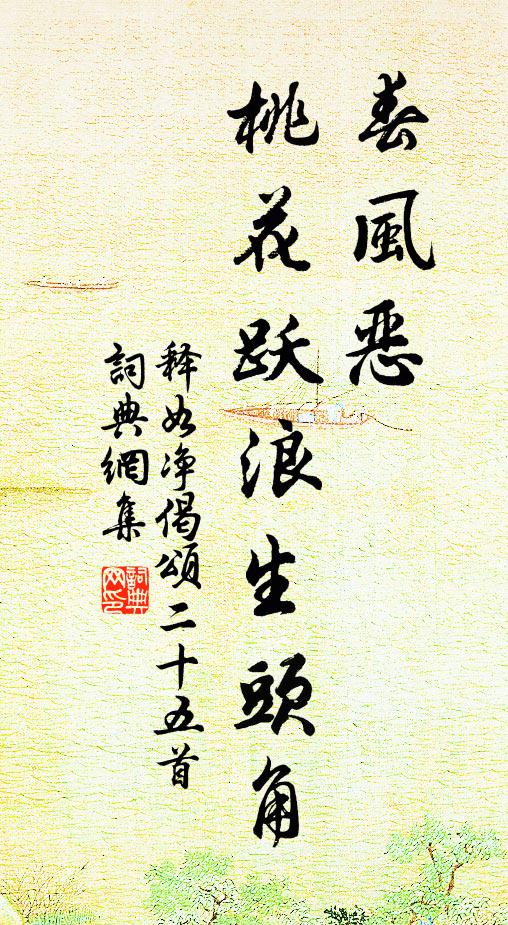 春風恶
桃花跃浪生頭角
释如净偈颂二十五首
詞典網集
詞典
网印